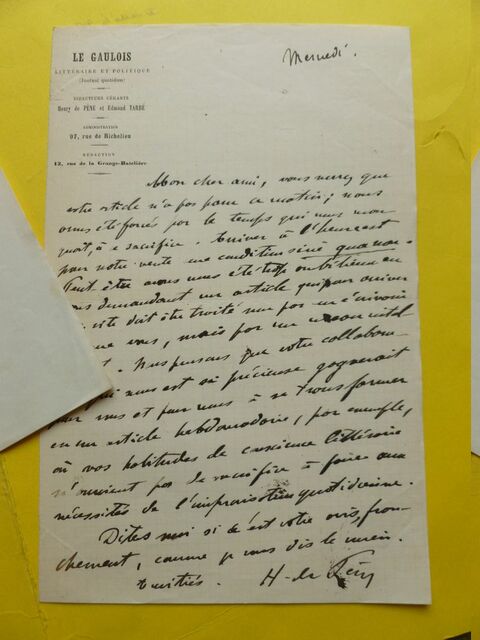 LE GAULOIS
LITTÉRAIRE ET POLITIQUE
(Journal quotidien)
DIRECTEURS GÉRANTS
Henry de PÈNE et Edmond TARBÉ
ADMINISTRATION
97, rue de Richelieu
RÉDACTION
12, rue de la Grange-Batelière
Mercredi.
Mon cher ami, vous verrez que
votre article n'a pas paru ce matin; nous
avons été forcés par le temps qui nous man
quait, à ce sacrifice. Arriver à l'heure est
pour notre vente une condition sine qua non.
Peut être avons nous été trop ambitieux en
vous demandant un article qui pour arriver
vite doit être traité non par un écrivain
que vous, mais par un
Nous pensons que votre collabora
qui nous est si précieuse gagnerait
pour vous et pour nous à se transformer
en un article hebdomadaire, par exemple,
où vos habitudes de conscience littéraire
n'auraient pas de sacrifice à faire aux
nécessités de l'improvisation quotidienne.
Dites moi si c'est votre avis, fran-
chement, comme je vous dis le mien.
Amitiés. H. de Pène